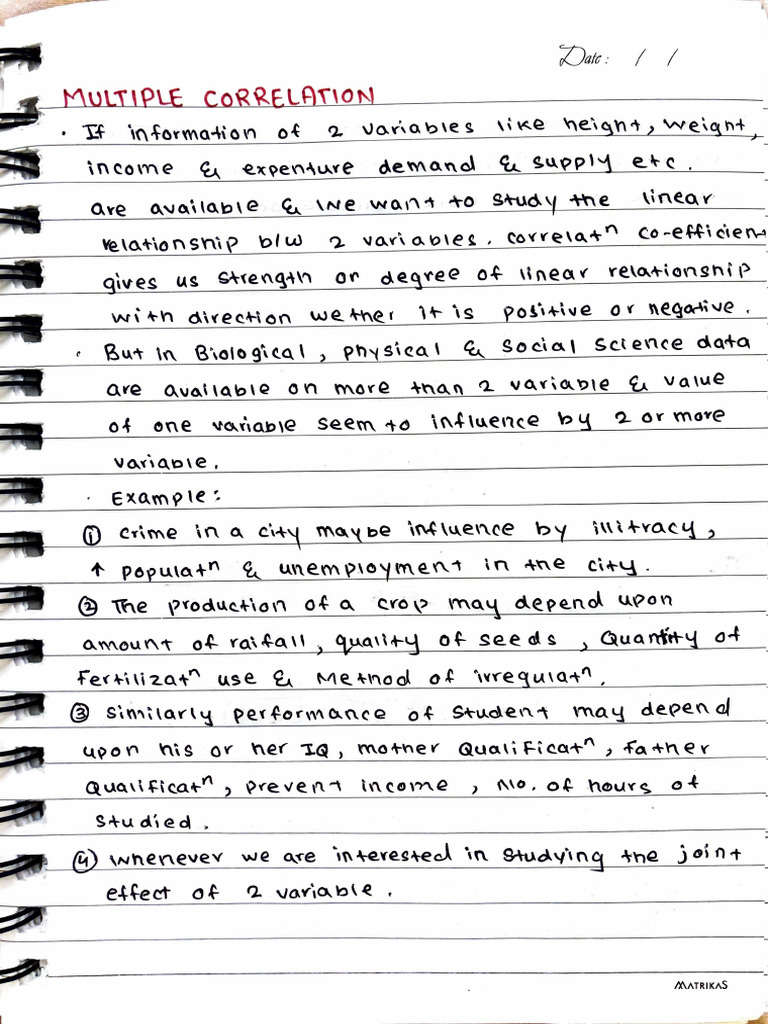 Date: / /
MULTIPLE CORRELATION
· If information of 2 variables like height, weight,
income & expenture demand & supply etc.
are available & we want to study the linear
relationship b/w 2 variables. correlatⁿ co-efficient
gives us strength or degree of linear relationship
with direction wether it is positive or negative.
· But in Biological, physical & social science data
are available on more than 2 variable & value
of one variable seem to influence by 2 or more
variable.
· Example:
① crime in a city maybe influence by illitracy,
↑ populatⁿ & unemployment in the city.
② The production of a crop may depend upon
amount of raifall, quality of seeds, Quantity of
Fertilizatⁿ use & Method of irregulatⁿ.
③ similarly performance of student may depend
upon his or her IQ, mother Qualificatⁿ, father
Qualificatⁿ, prevent income, No. of hours of
studied.
④ whenever we are interested in studying the joint
effect of 2 variable.
MATRIKAS